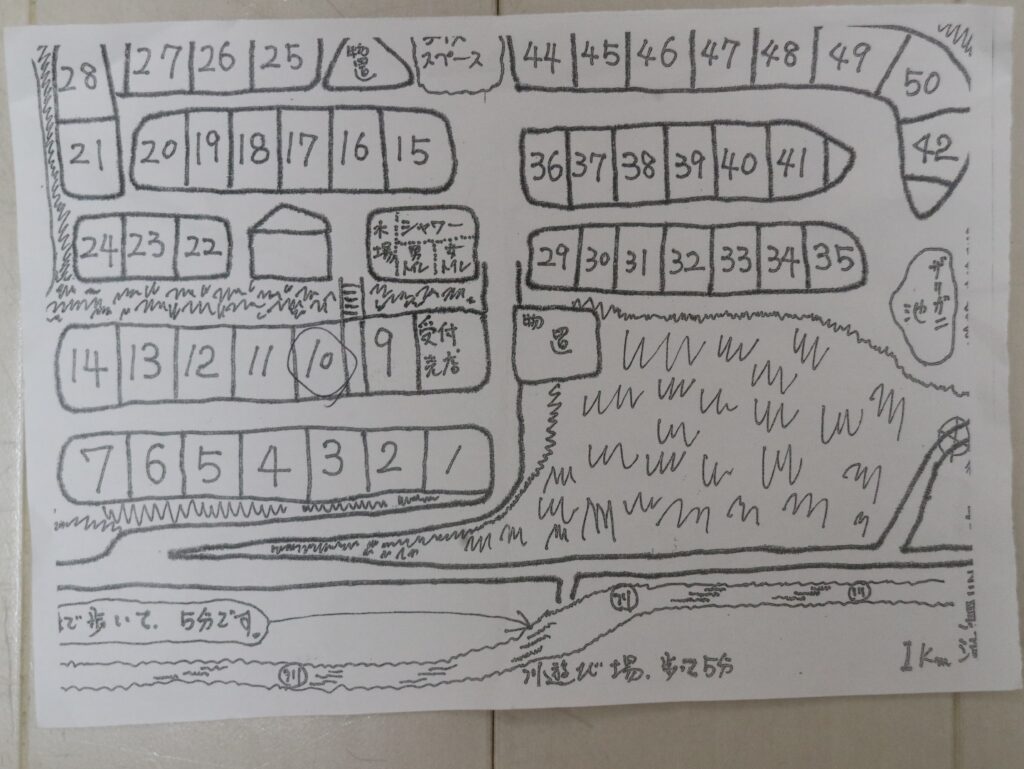 28 27 26 25 物置
スペース
44 45 46 47 48 49 50
21 20 19 18 17 16 15
36 37 38 39 40 41 42
24 23 22
水場 シャワー
男トイレ 女トイレ
29 30 31 32 33 34 35
ザリガニ池
14 13 12 11 10 9 受付売店
物置
7 6 5 4 3 2 1
で歩いて、5分です。
川 川
川
川遊び場、歩いて5分
1Km